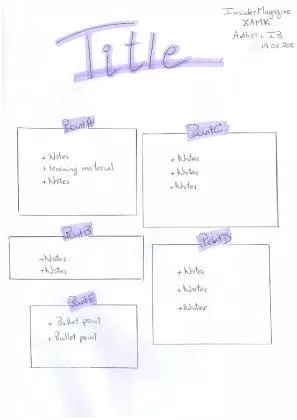 Insider Magazine
XAMK
Author: IB
Title
Point A
+ Notes
+ learning material
+ Notes
Point C
+ Notes
+ Notes
+ Notes
Point B
+ Notes
+ Notes
Point D
+ Notes
+ Notes
+ Notes
Point E
+ Bullet point
+ Bullet point